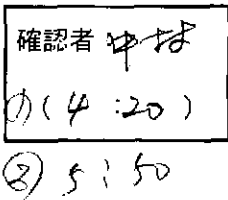 確認者 中村
の(4:20)
② 5:50